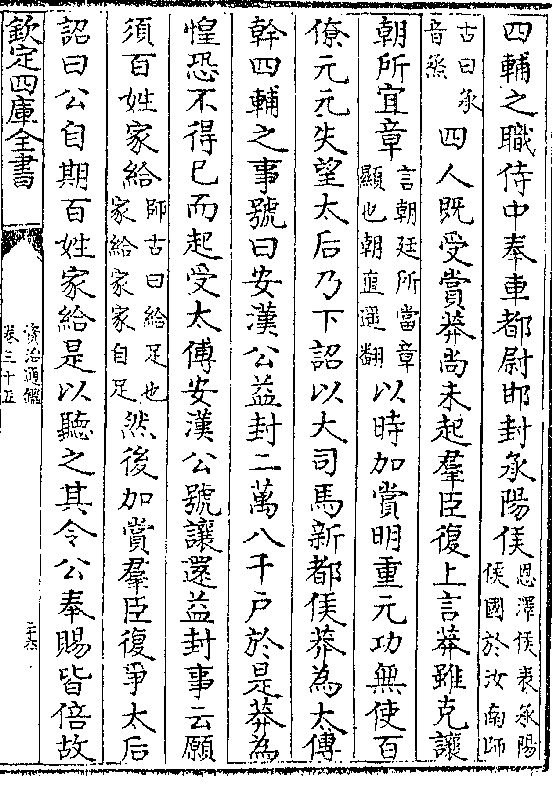 四輔之職侍中奉車都尉邯封承陽侯恩澤侯表承陽侯國於汝南師
古曰承音烝四人既受賞莽尚未起羣臣復上言莽雖克讓
朝所宜章言朝廷所當章顯也朝直遥翻以時加賞明重元功無使百
僚元元失望太后乃下詔以大司馬新都侯莽為太傅
幹四輔之事號曰安漢公益封二萬八千户於是莽為
惶恐不得已而起受太傅安漢公號讓還益封事云願
須百姓家給師古曰給足也家給家家自足然後加賞羣臣復爭太后
詔曰公自期百姓家給是以聽之其令公奉賜皆倍故
欽定四庫全書
資治通鑑
卷三十五